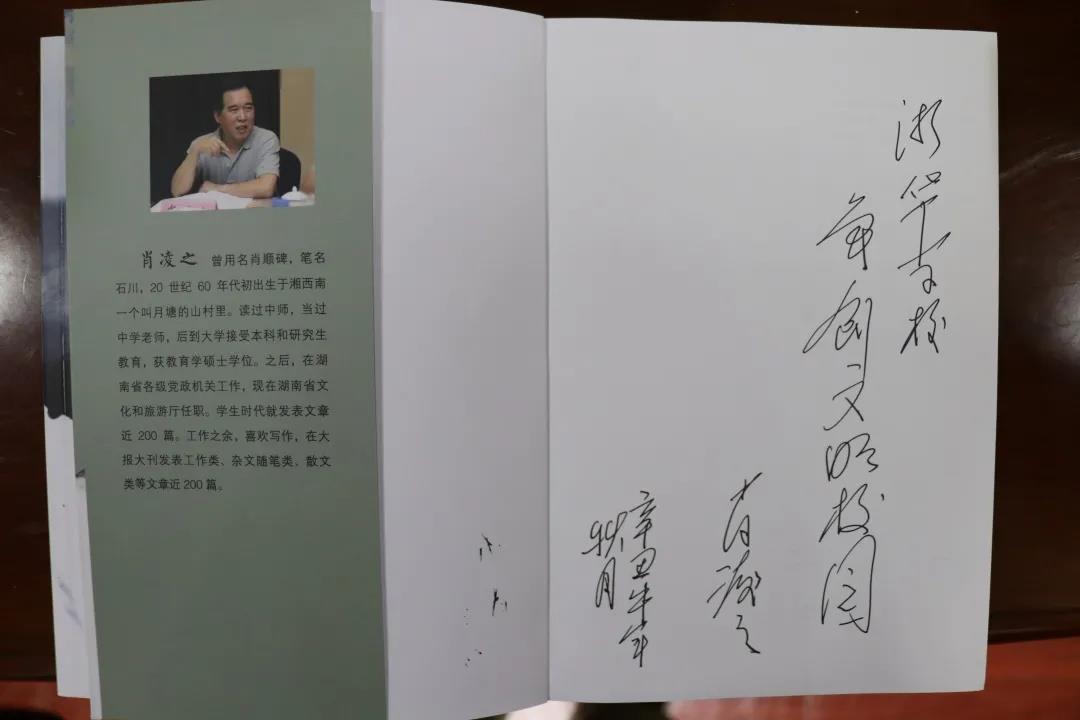 肖凌之 曾用名肖顺碑，笔名
石川，20 世纪 60 年代初出生于湘西南
一个叫月塘的山村里。读过中师，当过
中学老师，后到大学接受本科和研究生
教育，获教育学硕士学位。之后，在湖
南省各级党政机关工作，现在湖南省文
化和旅游厅任职。学生时代就发表文章
近 200 篇。工作之余，喜欢写作，在大
报大刊发表工作类、杂文随笔类、散文
类等文章近 200 篇。
校
争创文明校园
肖凌之
辛丑牛年
秋月